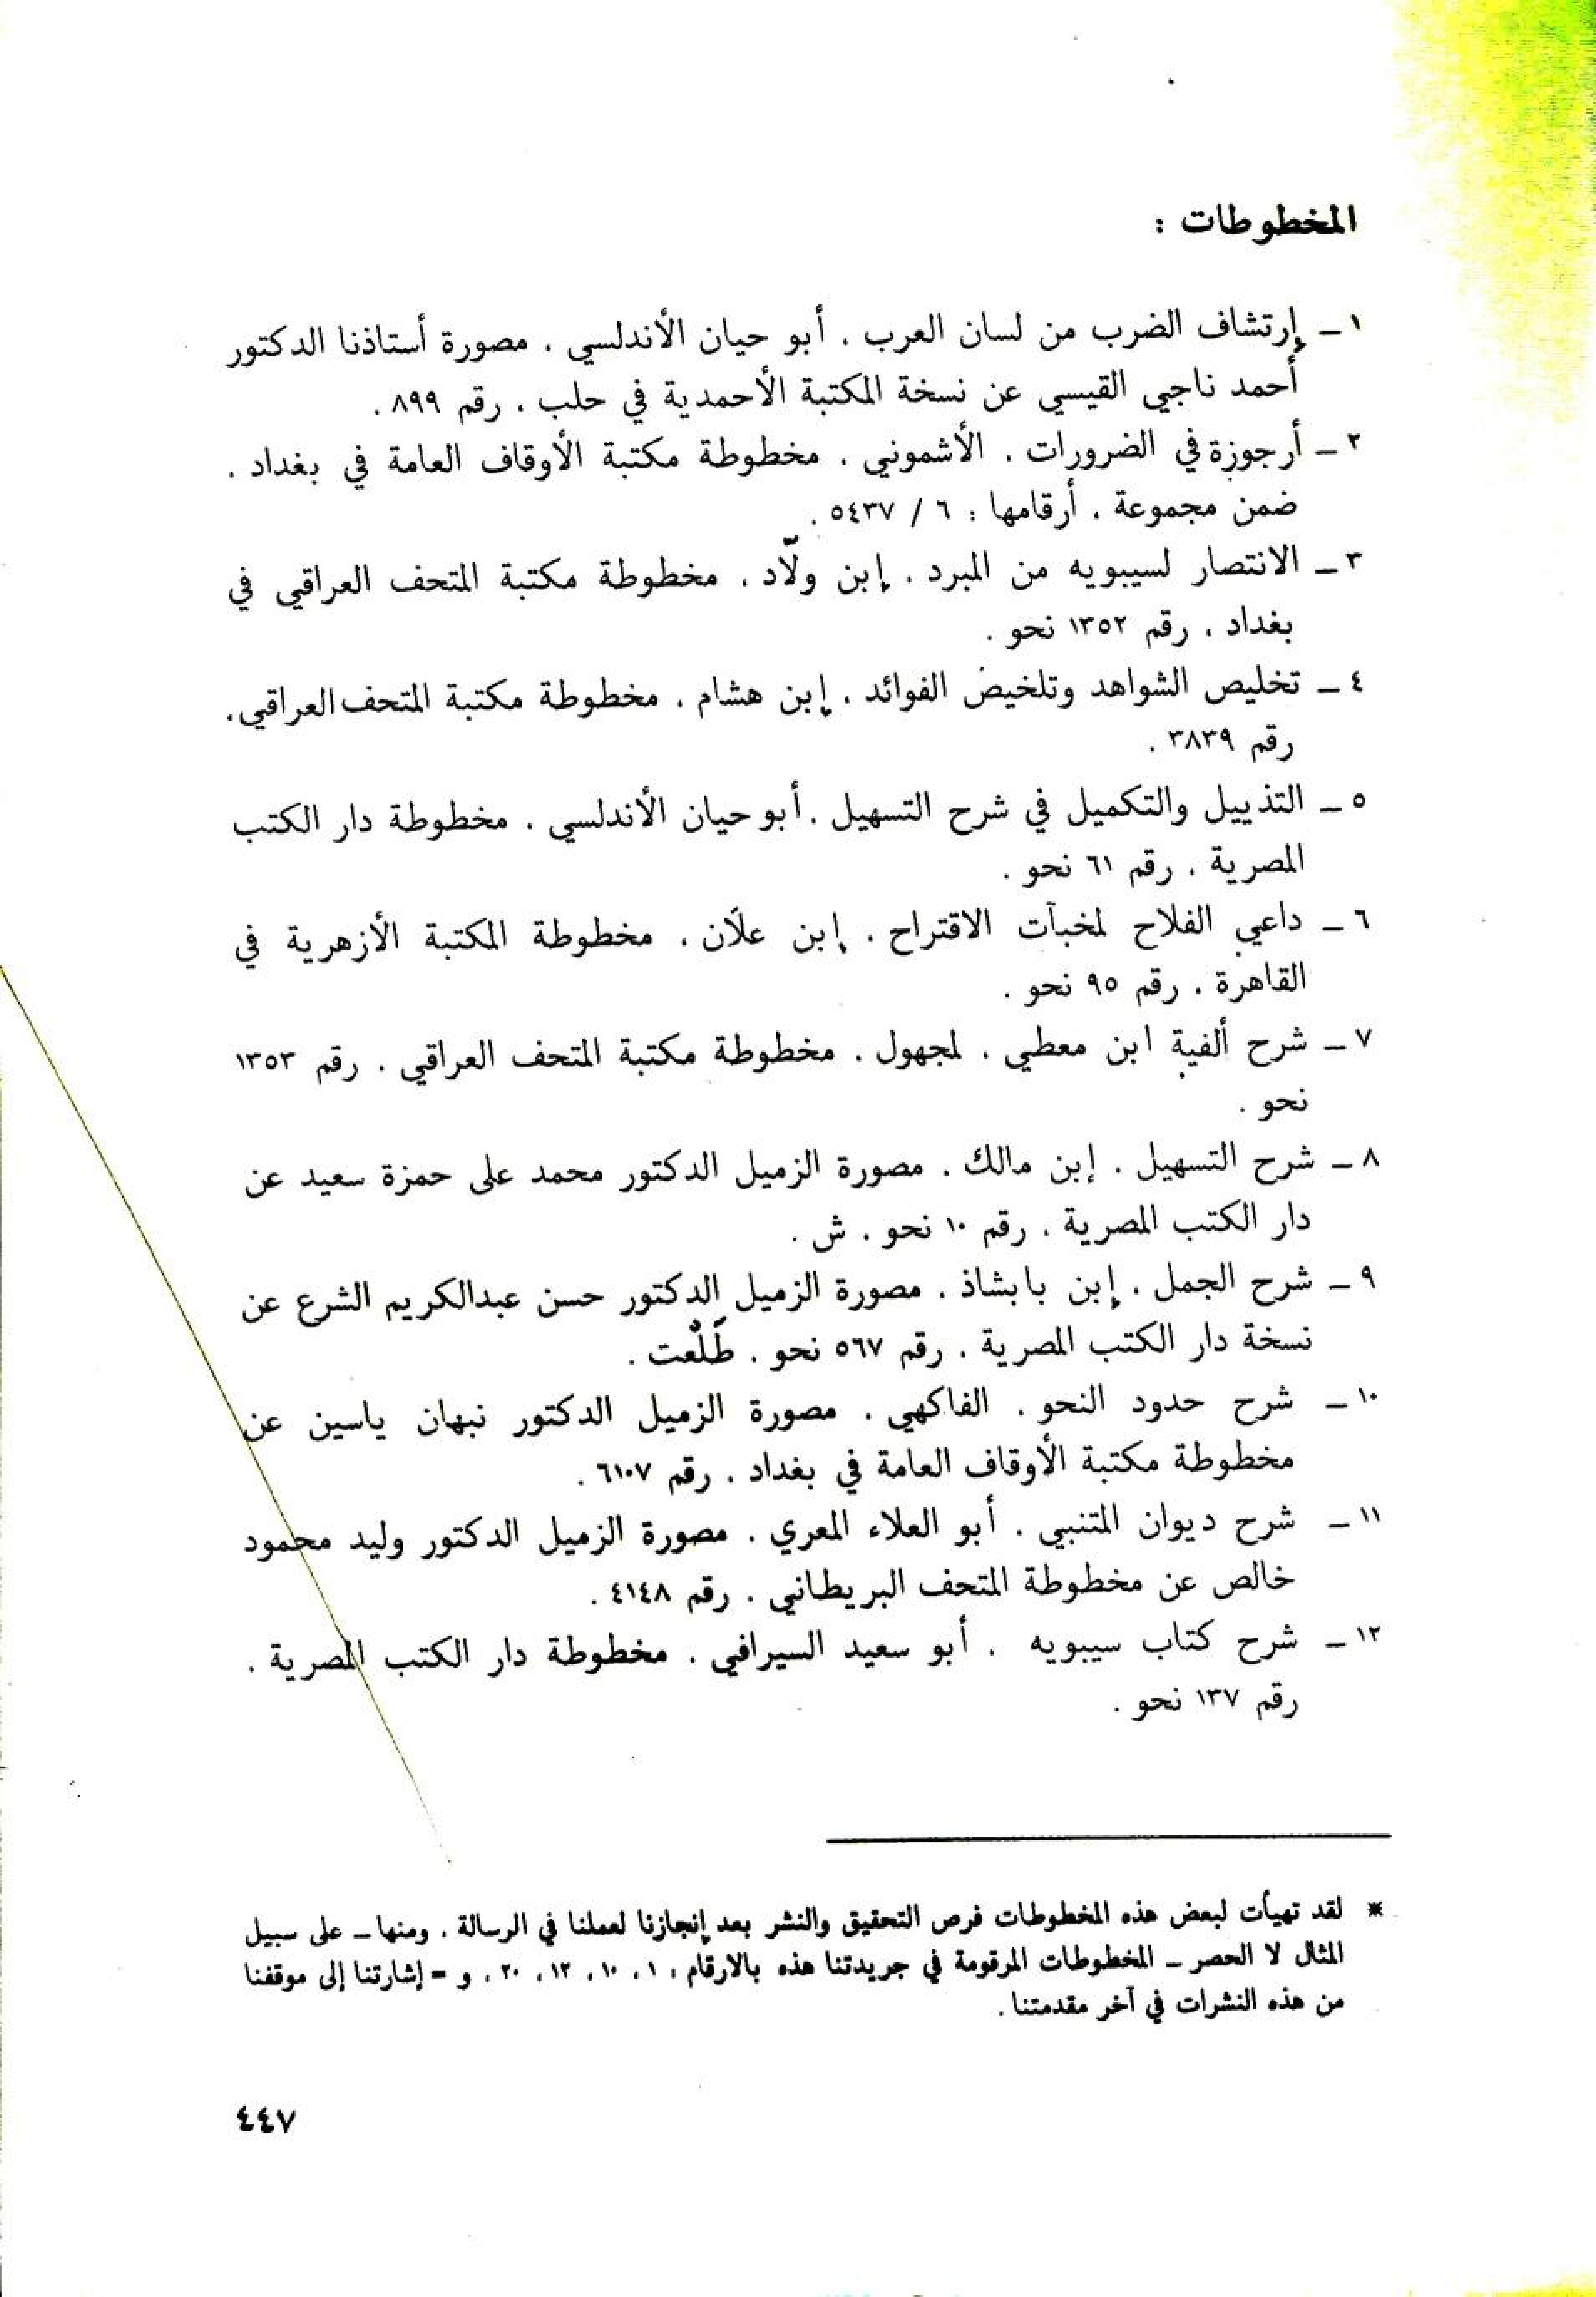 المخطوطات :
١ ـ إرتشاف الضرب من لسان العرب . أبو حيان الأندلسي . مصورة أستاذنا الدكتور
أحمد ناجي القيسي عن نسخة المكتبة الأحمدية في حلب . رقم ٨٩٩ .
٢ ـ أرجوزة في الضرورات . الأشموني . مخطوطة مكتبة الأوقاف العامة في بغداد .
ضمن مجموعة . أرقامها : ٦ / ٥٤٣٧ .
٣ ـ الانتصار لسيبويه من المبرد . إبن ولّاد . مخطوطة مكتبة المتحف العراقي في
بغداد . رقم ١٣٥٢ نحو .
٤ ـ تخليص الشواهد وتلخيص الفوائد . إبن هشام . مخطوطة مكتبة المتحف العراقي .
رقم ٣٨٣٩ .
٥ ـ التذييل والتكميل في شرح التسهيل . أبو حيان الأندلسي . مخطوطة دار الكتب
المصرية . رقم ٦١ نحو .
٦ ـ داعي الفلاح لمخبآت الاقتراح . إبن علّان . مخطوطة المكتبة الأزهرية في
القاهرة . رقم ٩٥ نحو .
٧ ـ شرح ألفية ابن معطي . لمجهول . مخطوطة مكتبة المتحف العراقي . رقم ١٣٥٣
نحو .
٨ ـ شرح التسهيل . إبن مالك . مصورة الزميل الدكتور محمد على حمزة سعيد عن
دار الكتب المصرية . رقم ١٠ نحو . ش .
٩ ـ شرح الجمل . إبن بابشاذ . مصورة الزميل الدكتور حسن عبدالكريم الشرع عن
نسخة دار الكتب المصرية . رقم ٥٦٧ نحو . طَلْعت .
١٠ ـ شرح حدود النحو . الفاكهي . مصورة الزميل الدكتور نبهان ياسين عن
مخطوطة مكتبة الأوقاف العامة في بغداد . رقم ٦١٠٧ .
١١ ـ شرح ديوان المتنبي . أبو العلاء المعري . مصورة الزميل الدكتور وليد محمود
خالص عن مخطوطة المتحف البريطاني . رقم ٤١٤٨ .
١٢ ـ شرح كتاب سيبويه . أبو سعيد السيرافي . مخطوطة دار الكتب المصرية .
رقم ١٣٧ نحو .
* لقد تهيأت لبعض هذه المخطوطات فرص التحقيق والنشر بعد إنجازنا لعملنا في الرسالة . ومنها ـ على سبيل
المثال لا الحصر ـ المخطوطات المرقومة في جريدتنا هذه بالارقام ، ١ ، ١٠ ، ١٢ ، ٢٠ ، و = إشارتنا إلى موقفنا
من هذه النشرات في آخر مقدمتنا .
٤٤٧